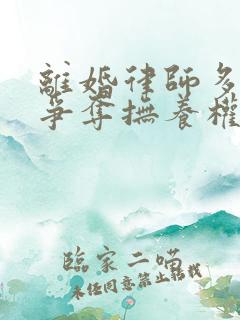 離婚律師多
爭奪撫養權
臨家二喵
未經同意禁止轉載